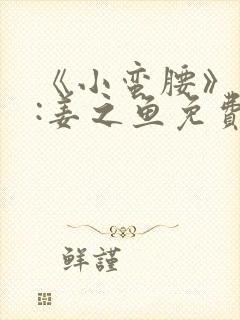 《小蛮腰》
:姜之鱼免费
鲜謹